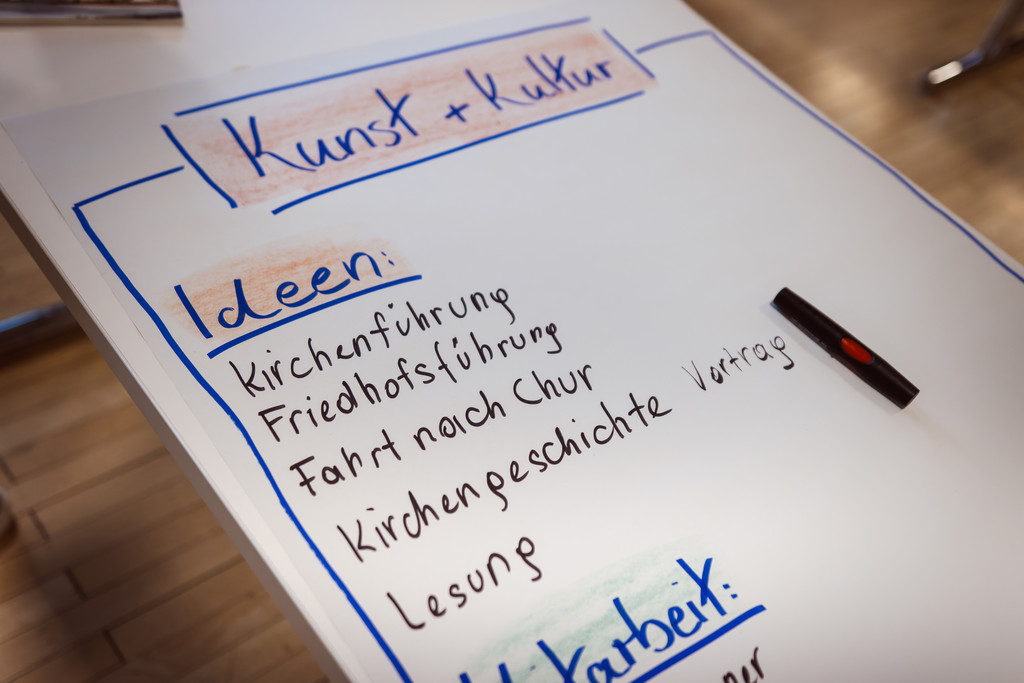 Kunst + Kultur
Ideen:
Kirchenführung
Friedhofsführung
Fahrt nach Chur
Kirchengeschichte Vortrag
Lesung